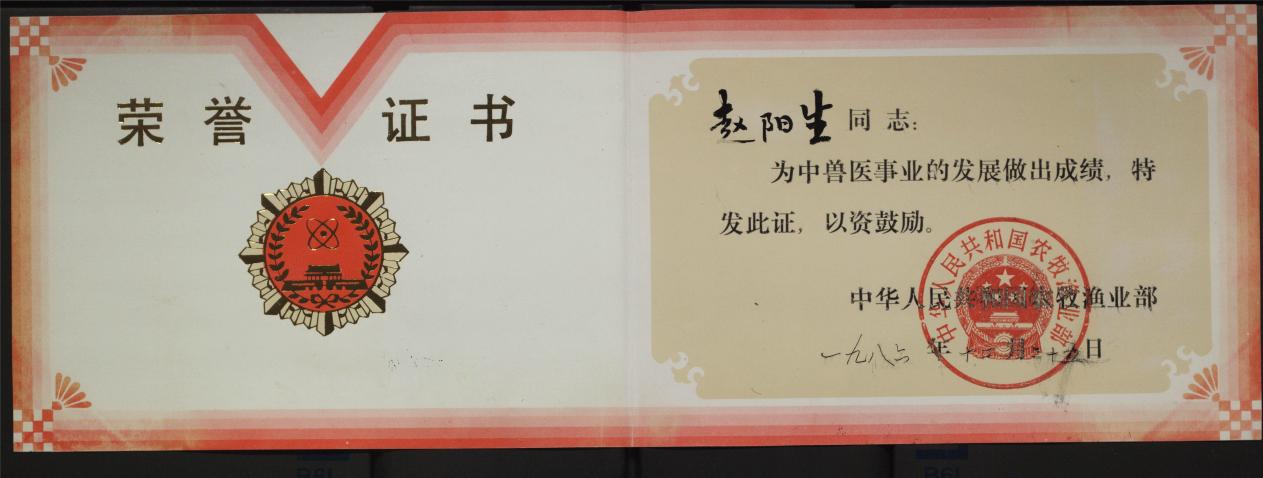 荣誉证书
赵阳生同志:
为中兽医事业的发展做出成绩,特
发此证,以资鼓励。
中华人民共和国农牧渔业部
中华人民共和国农牧渔业部
一九八六年十二月二十五日